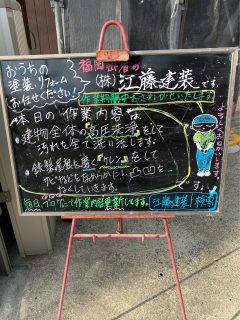 おうちの
塗装・リフォーム
お任せください!
福岡
(株)江藤建装です。
作業期間中おさわがせいたします
本日の作業内容は
建物全体の高圧洗浄をして
汚れを全て洗い流します。
・鉄製房根を磨く"ケレン"をして
サビなどをなめらかにし、凸凹を
なくしていきます。
です。
よろしくおねがいします。
毎日ブログにて作業内容更新してます。
江藤建装 検索